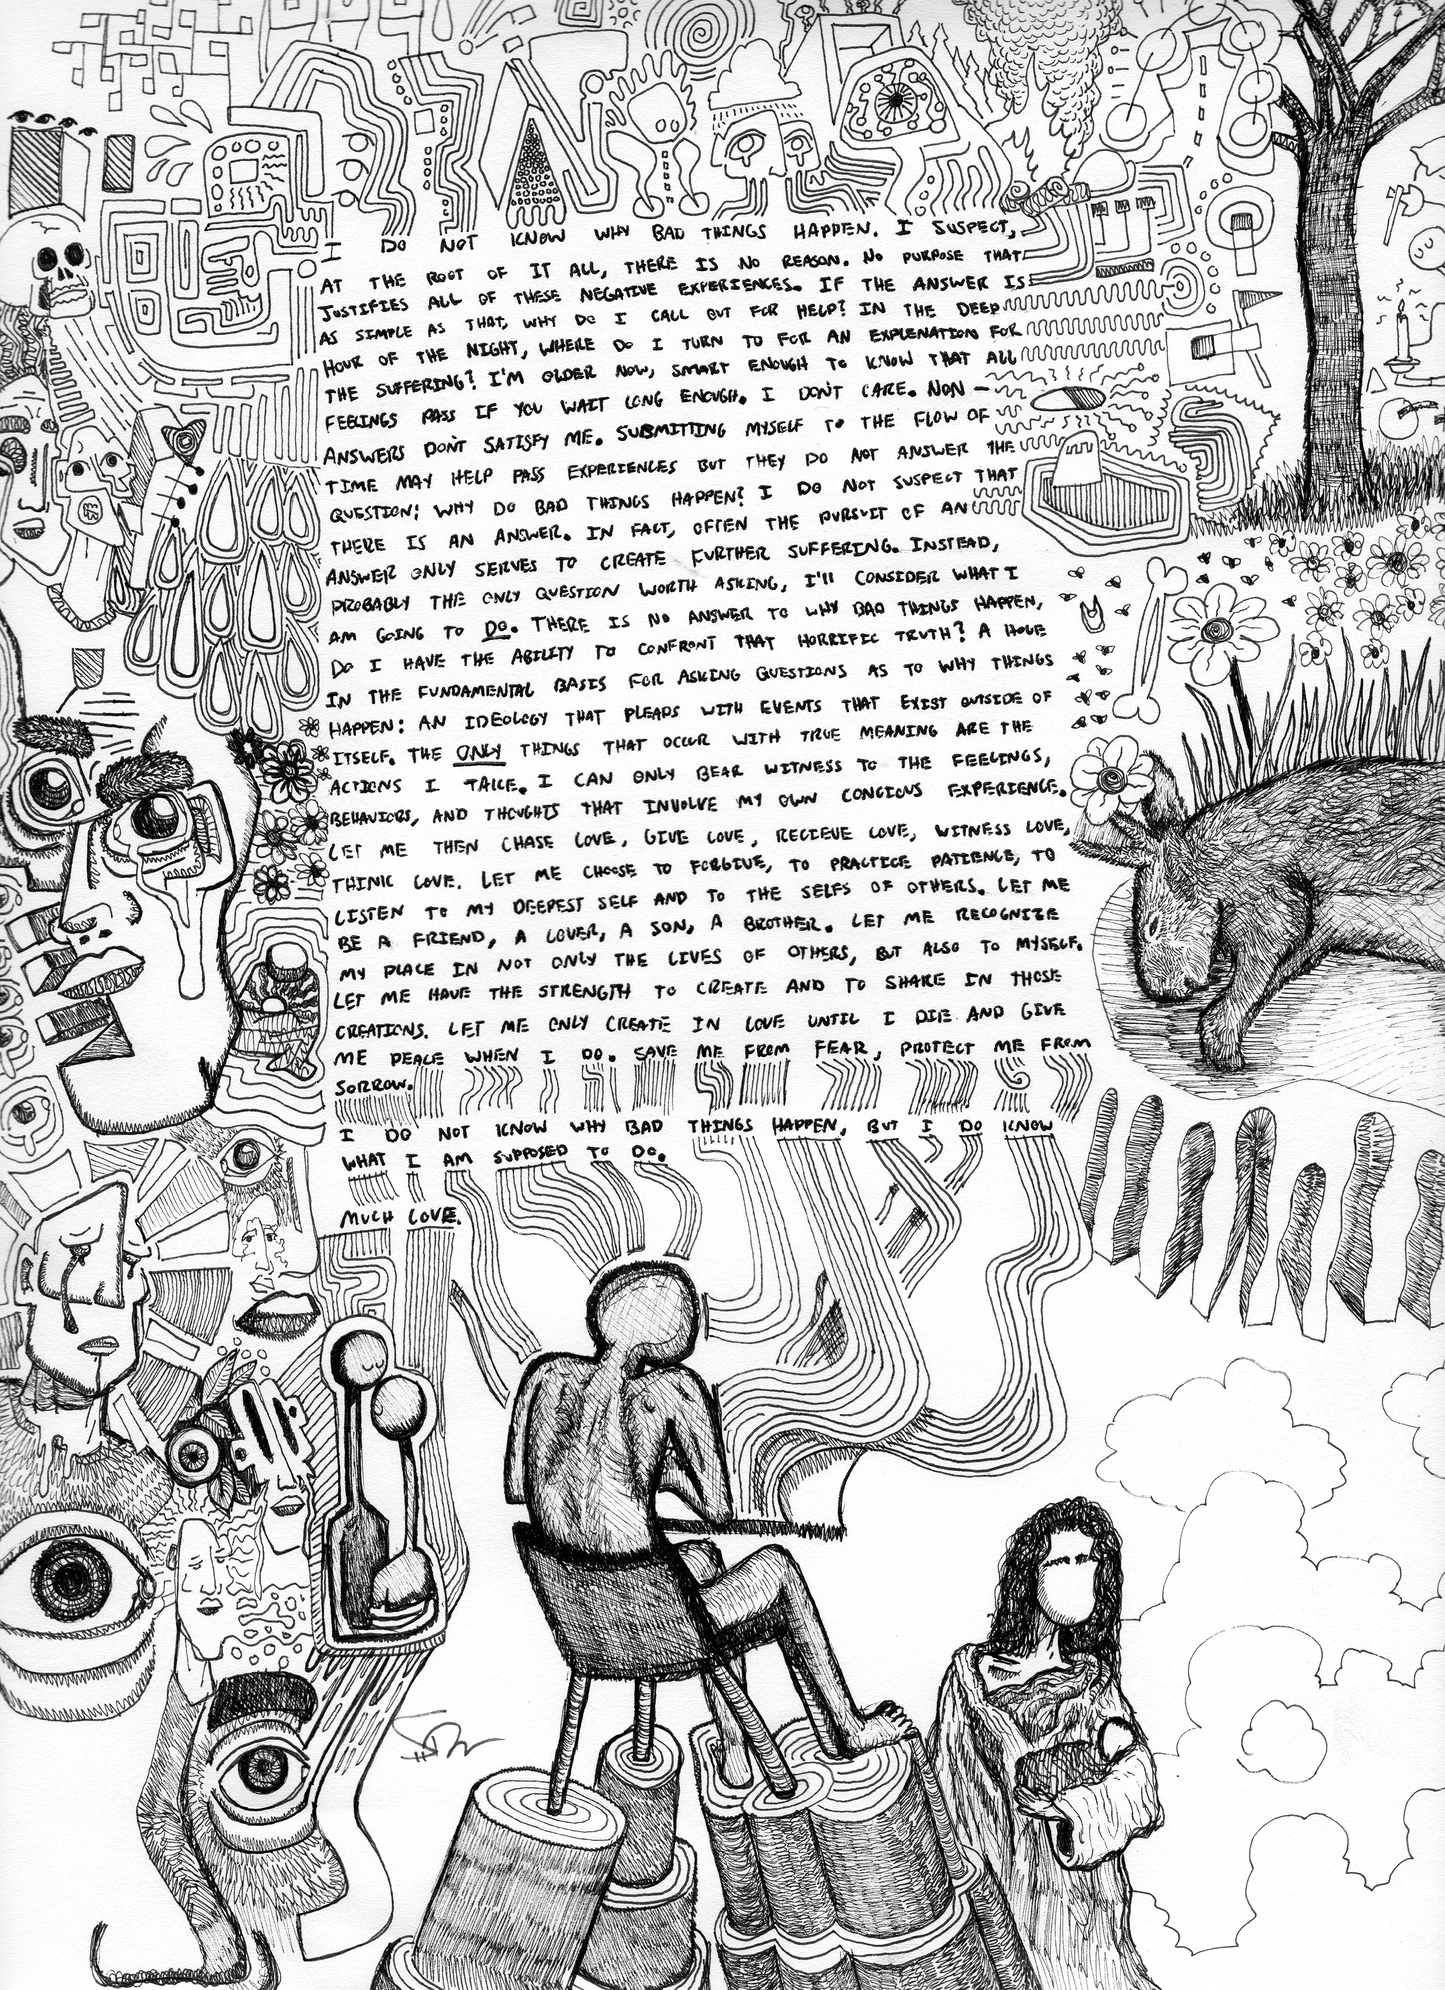 I DO NOT KNOW WHY BAD THINGS HAPPEN. I SUSPECT,
AT THE ROOT OF IT ALL, THERE IS NO REASON. NO PURPOSE THAT
JUSTIFIES ALL OF THESE NEGATIVE EXPERIENCES. IF THE ANSWER IS
AS SIMPLE AS THAT, WHY DO I CALL OUT FOR HELP? IN THE DEEP
HOUR OF THE NIGHT, WHERE DO I TURN TO FOR AN EXPLENATION FOR
THE SUFFERING? I'M OLDER NOW, SMART ENOUGH TO KNOW THAT ALL
FEELINGS PASS IF YOU WAIT LONG ENOUGH. I DON'T CARE. NON-
ANSWERS DON'T SATISFY ME. SUBMITTING MYSELF TO THE FLOW OF
TIME MAY HELP PASS EXPERIENCES BUT THEY DO NOT ANSWER THE
QUESTION: WHY DO BAD THINGS HAPPEN? I DO NOT SUSPECT THAT
THERE IS AN ANSWER. IN FACT, OFTEN THE PURSUIT OF AN
ANSWER ONLY SERVES TO CREATE FURTHER SUFFERING. INSTEAD,
PROBABLY THE ONLY QUESTION WORTH ASKING, I'll CONSIDER WHAT I
AM GOING TO DO. THERE IS NO ANSWER TO WHY BAD THINGS HAPPEN,
DO I HAVE THE ABILITY TO CONFRONT THAT HORRIFIC TRUTH? A HOLE
IN THE FUNDAMENTAL BASIS FOR ASKING QUESTIONS AS TO WHY THINGS
HAPPEN: AN IDEOLOGY THAT PLEADS WITH EVENTS THAT EXIST OUTSIDE OF
ITSELF. THE ONLY THINGS THAT OCCUR WITH TRUE MEANING ARE THE
ACTIONS I TAKE. I CAN ONLY BEAR WITNESS TO THE FEELINGS,
BEHAVIORS, AND THOUGHTS THAT INVOLVE MY OWN CONCIOUS EXPERIENCE.
LET ME THEN CHASE LOVE, GIVE LOVE, RECIEVE LOVE, WITNESS LOVE,
THINK LOVE. LET ME CHOOSE TO FORGIVE, TO PRACTICE PATIENCE, TO
LISTEN TO MY DEEPEST SELF AND TO THE SELFS OF OTHERS. LET ME
BE A FRIEND, A LOVER, A SON, A BROTHER. LET ME RECOGNIZE
MY PLACE IN NOT ONLY THE LIVES OF OTHERS, BUT ALSO TO MYSELF.
LET ME HAVE THE STRENGTH TO CREATE AND TO SHARE IN THOSE
CREATIONS. LET ME ONLY CREATE IN LOVE UNTIL I DIE AND GIVE
ME PEACE WHEN I DO. SAVE ME FROM FEAR, PROTECT ME FROM
SORROW.
I DO NOT KNOW WHY BAD THINGS HAPPEN, BUT I DO KNOW
WHAT I AM SUPPOSED TO DO.
MUCH LOVE.